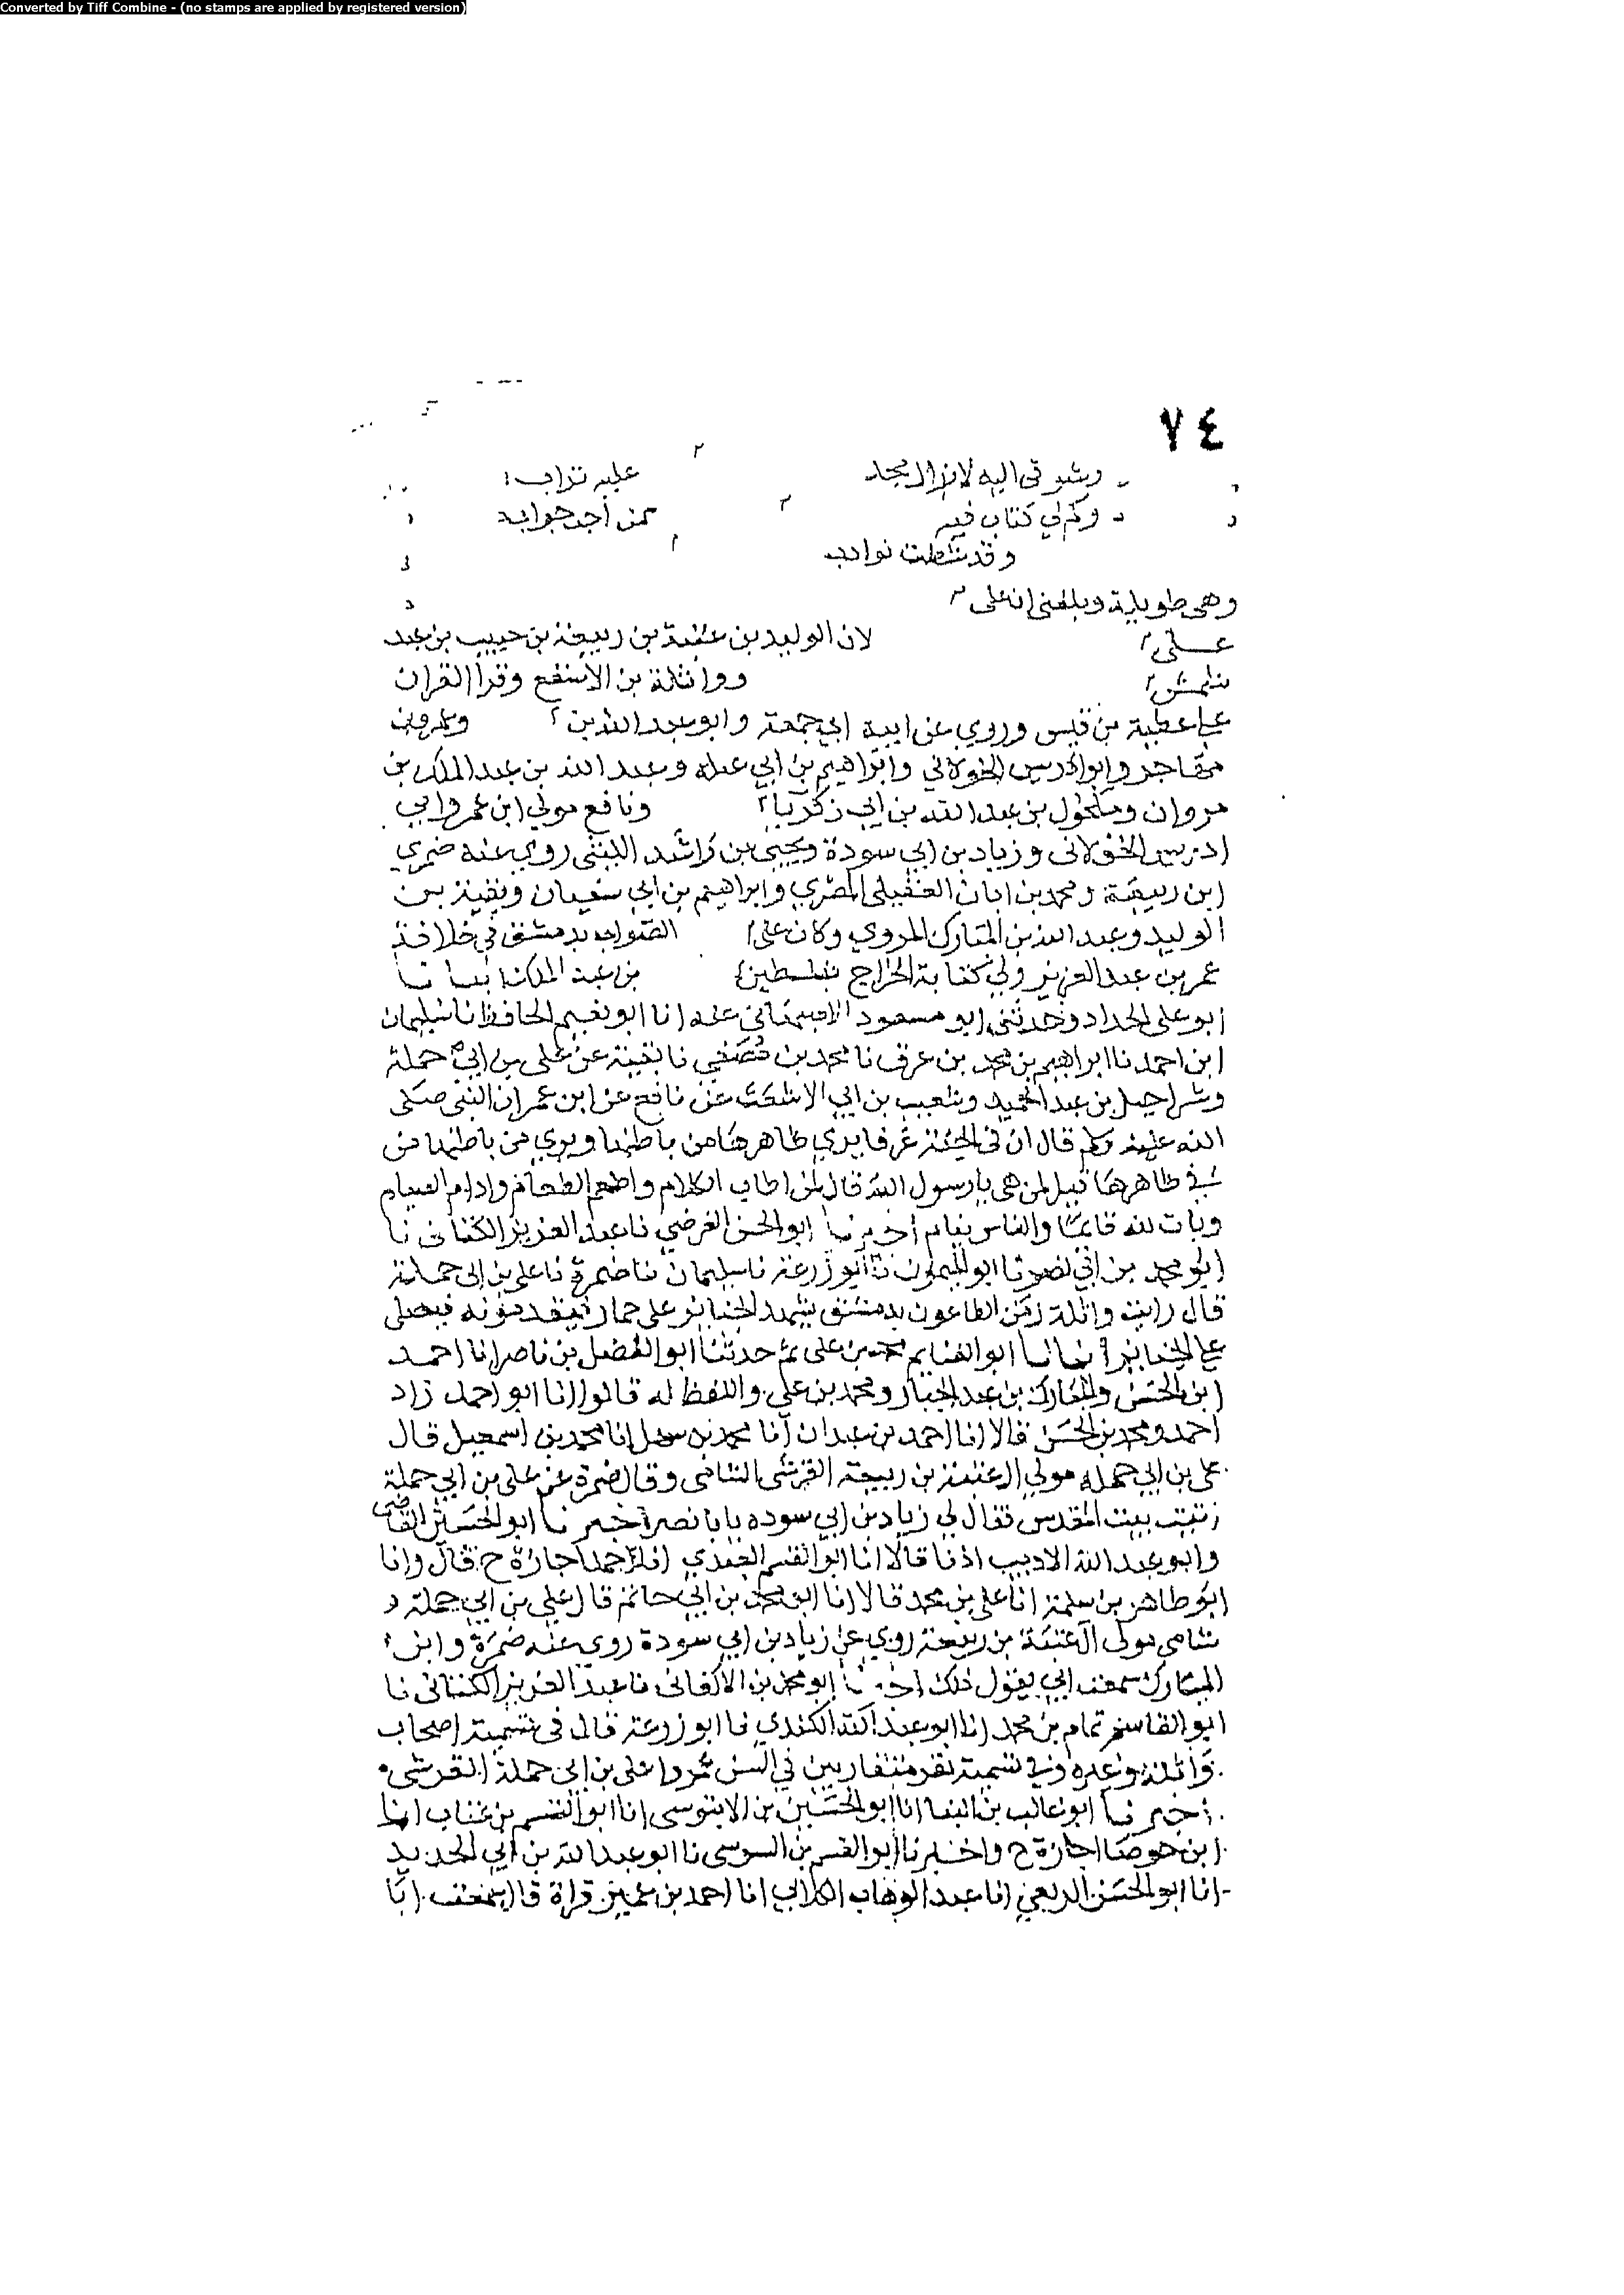 Converted by Tiff Combine - (no stamps are applied by registered version)
٧٤
وشوقى اليه لا يزال عليه تراب
وكم لي كتاب فيه أجد جوابه
وقد نوادب
وهى طويلة وبلغنى ان على
على لان الوليد بن عتبة بن ربيعة بن حبيب بن عبد
وواثلة بن الاسقع وقرا القران
على عطية بن قيس وروي عن ابيه ابي جمعة وابو عبد الله بن
مهاجر وابو ادريس الخولاني وابراهيم بن ابي عبله وعبد الله بن عبد الملك بن
مروان ومكحول بن عبد الله بن ابي زكريا ونافع مولي ابن عمر وابي
ادريس الخولانى وزياد بن ابي سودة ويحيى بن راشد الليثى روي عنه ضمري
ابن ربيعة ومحمد بن ابان العقيلى المصري وابراهيم بن ابي سفيان وبقية بن
الوليد وعبد الله بن المبارك المروي وكان على الصواب بدمشق في خلافة
عمر بن عبد العزيز ولي كتابة الخراج بفلسطين بن عبد الملك انبانا
ابو على الحداد وحدثنى ابو مسعود الاصبهاني عنه انا ابو نعيم الحافظ نا سليمان
ابن احمد نا ابراهيم بن محمد بن عرق نا محمد بن مصفى نا بقية عن على بن ابي حملة
وشراحيل بن عبد الحميد وشعيب بن ابي الاشعث عن نافع عن ابن عمر ان النبى صلى
الله عليه وسلم قال ان فى الجنة غرفا يري ظاهرها من باطنها ويري من باطنها من
ظاهرها قيل لمن هى يا رسول الله قال لمن اطاب الكلام واطعم الطعام وادام الصيام
وبات لله قائما والناس نيام اخبرنا ابو الحسن الفرضي نا عبد العزيز الكتانى نا
ابو محمد بن ابي نصر نا ابو الميمون نا ابو زرعة نا سليمان نا ضمرة نا على بن ابى حملة
قال رايت واثلة زمن الطاعون بدمشق يشهد الجنايز على حمار فيصلى
على الجنايز انبانا ابو الغنايم محمد بن على ثم حدثنا ابو الفضل بن ناصر انا احمد
ابن الحسن والمبارك بن عبد الجبار ومحمد بن علي واللفظ له قالوا انا ابو احمد زاد
احمد ومحمد بن الحسن قالا انا احمد بن عبدان انا محمد بن سهل انا محمد بن اسمعيل قال
على بن ابي حمله مولي ال عتبة بن ربيعة القرشى الشامى وقال ضمرة عن على بن ابي حملة
بيت المقدس فقال لي زياد بن ابي سوده يابا نصر اخبرنا ابو الحسين القاضى
وابو عبد الله الاديب اذنا قالا انا ابو القسم العبدي انا حمد اجازة ح قال وانا
ابو طاهر بن سلمة انا على بن محمد قالا انا ابو محمد بن ابي حاتم قال علي بن ابي حملة
شامى مولى ال عتبة بن ربيعة روي عن زياد بن ابي سودة روي عنه ضمرة وابن
المبارك سمعت ابي يقول ذلك اخبرنا ابو محمد بن الاكفانى نا عبد العزيز الكتانى نا
ابو القاسم تمام بن محمد انا ابو عبد الله الكندي نا ابو زرعة قال فى تسمية اصحاب
واثلة وغيره وفي تسمية نفر متقاربين في السن عمروا على بن ابي حملة القرشى
اخبرنا ابو غالب بن البنا انا ابو الحسين بن الابنوسى انا ابو القسم بن عتاب انا
ابن جوصا اجازة ح واخبرنا ابو القسم بن السوسى نا ابو عبد الله بن ابي الحديد
انا ابو الحسن الربعي انا عبد الوهاب الكلابي انا احمد بن عمير قراة قال سمعت ابا